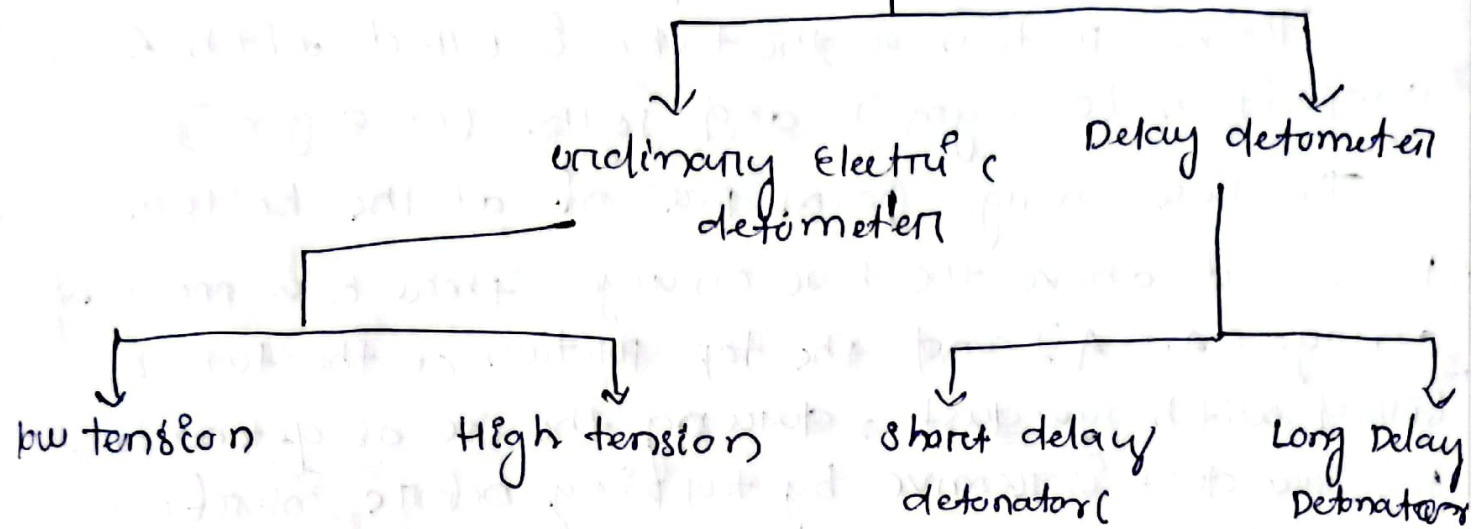 ordinary Electric
detometer
Delay detometer
low tension
High tension
short delay
detonator(
Long Delay
Detonator